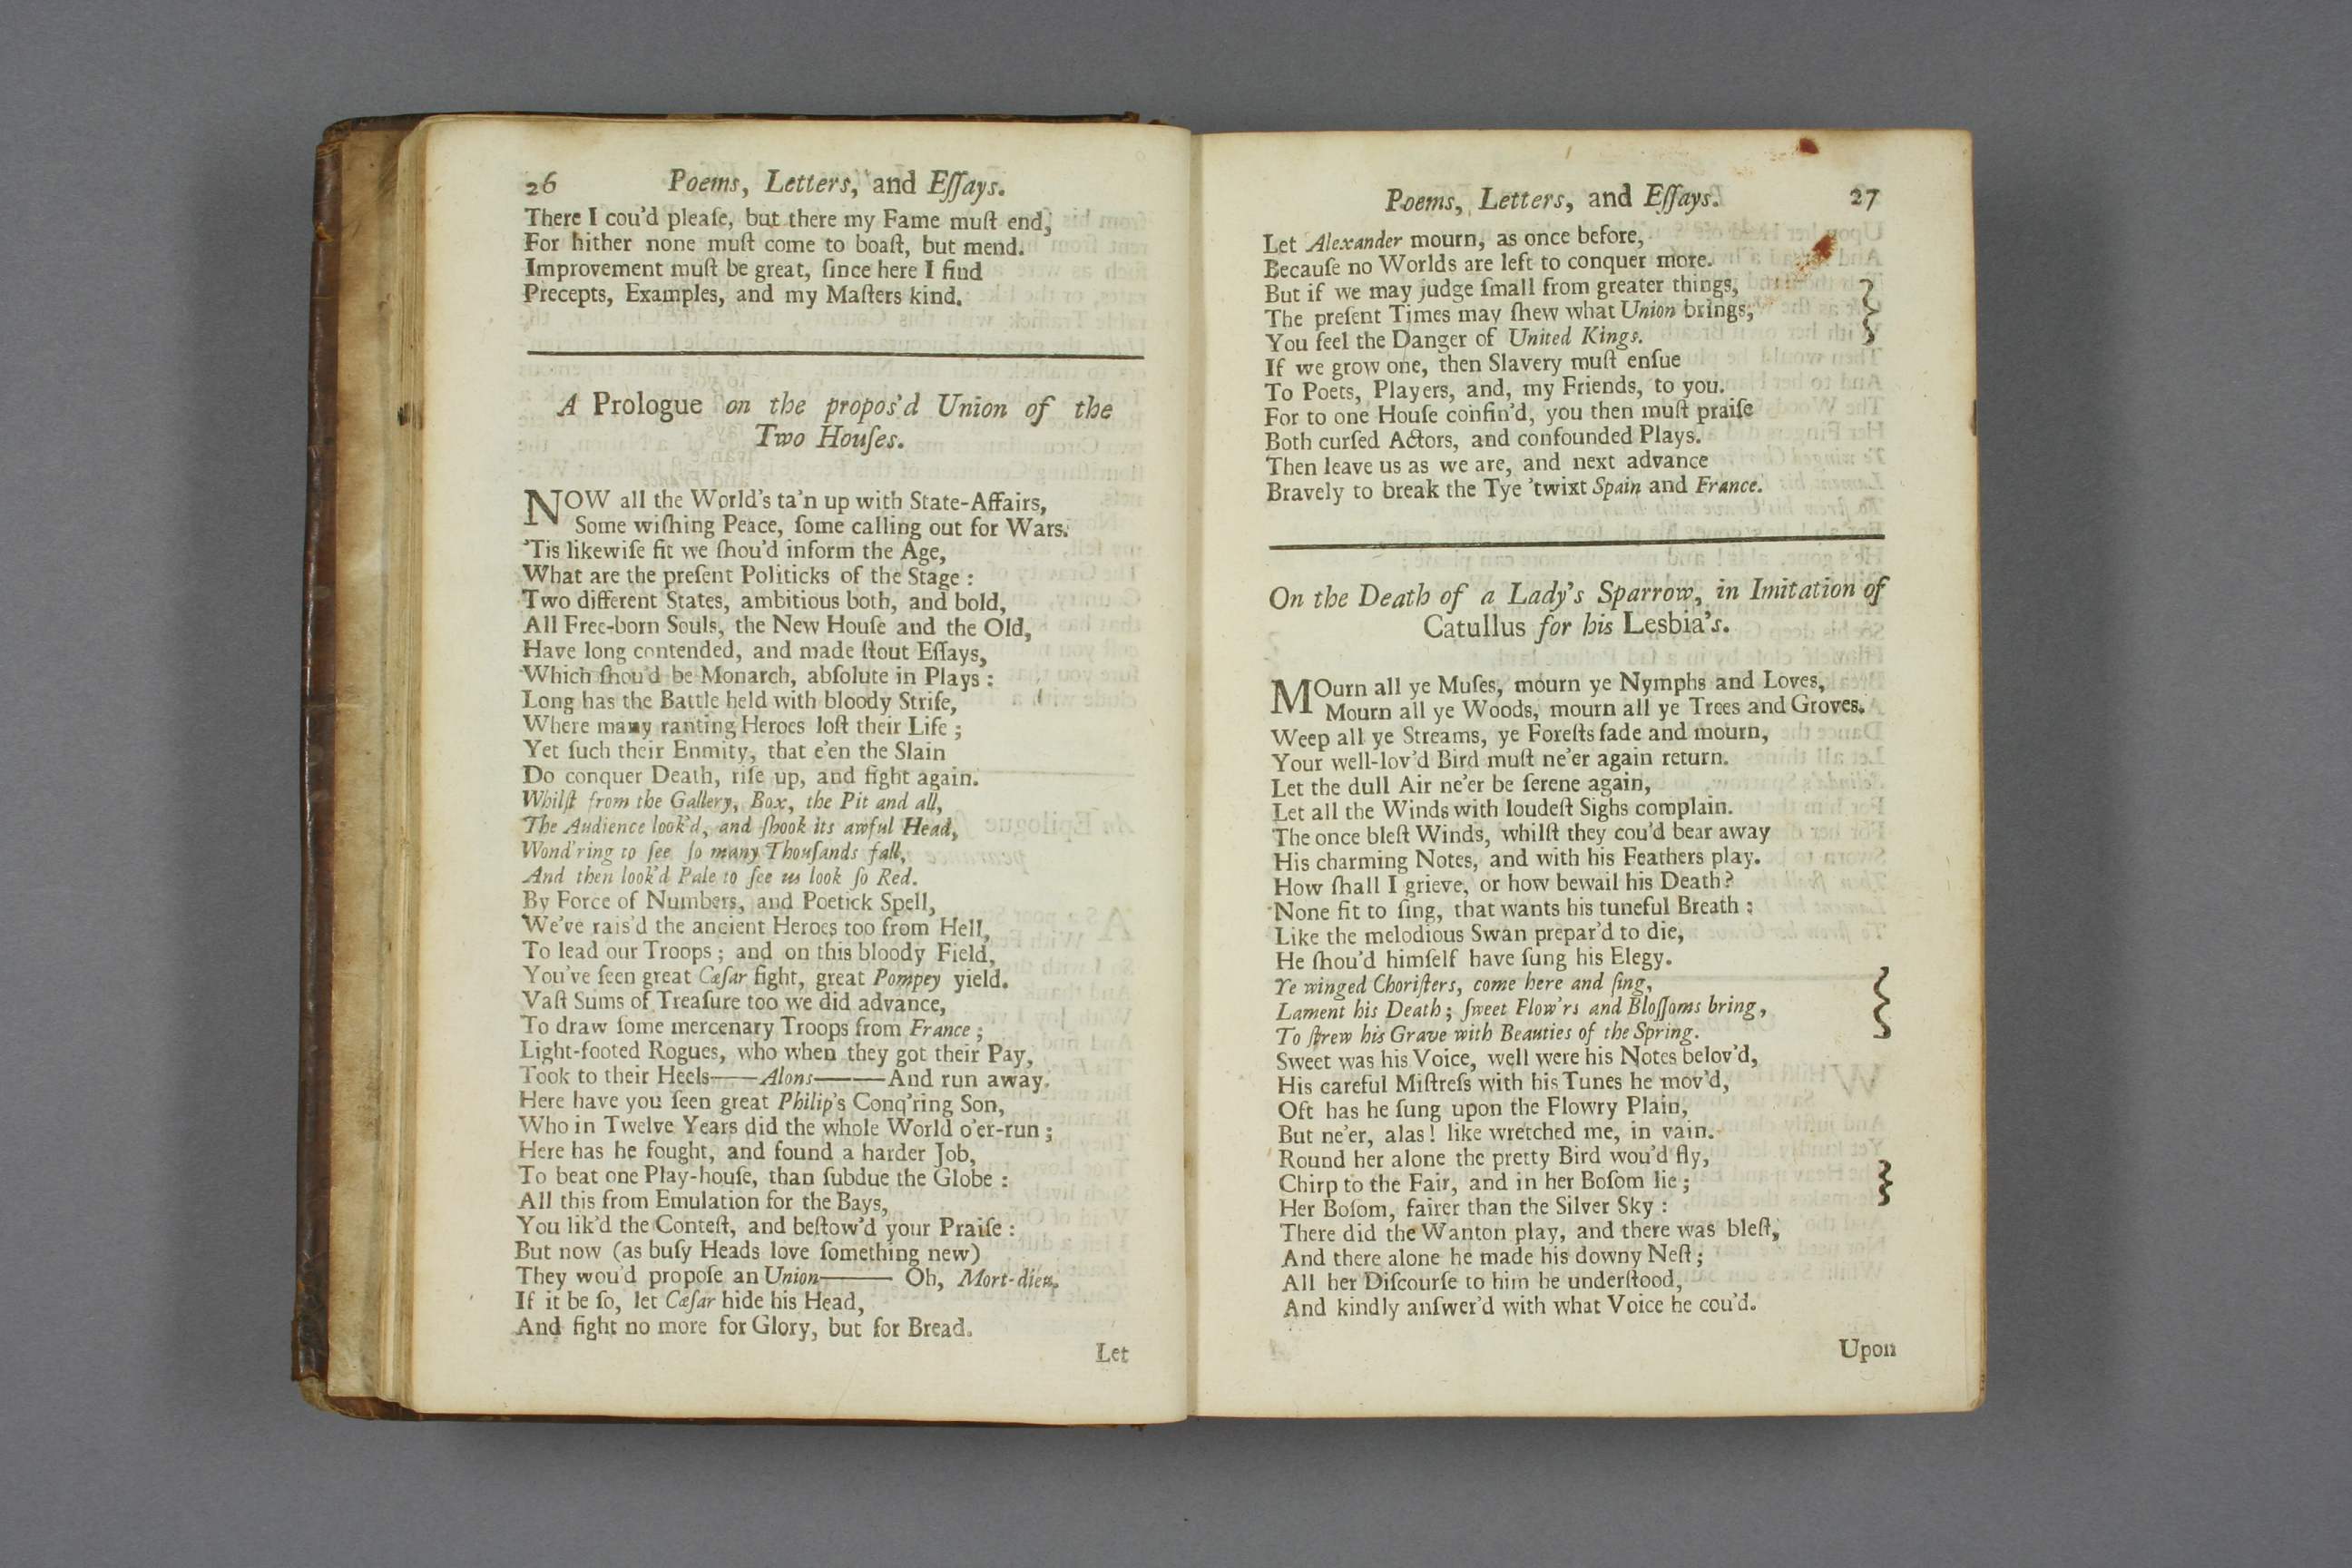 26 Poems, Letters, and Eſſays.
There I cou'd pleaſe, but there my Fame muſt end,
For hither none muſt come to boaſt, but mend.
Improvement muſt be great, ſince here I find
Precepts, Examples, and my Maſters kind.
A Prologue on the propos'd Union of the
Two Houſes.
NOW all the World's ta'n up with State-Affairs,
Some wiſhing Peace, ſome calling out for Wars.
'Tis likewiſe fit we ſhou'd inform the Age,
What are the preſent Politicks of the Stage :
Two different States, ambitious both, and bold,
All Free-born Souls, the New Houſe and the Old,
Have long contended, and made ſtout Eſſays,
Which ſhou'd be Monarch, abſolute in Plays :
Long has the Battle held with bloody Strife,
Where many ranting Heroes loſt their Life ;
Yet ſuch their Enmity, that e'en the Slain
Do conquer Death, riſe up, and fight again.
Whilſt from the Gallery, Box, the Pit and all,
The Audience look'd, and ſhook its awful Head,
Wond'ring to ſee ſo many Thouſands fall,
And then look'd Pale to ſee us look ſo Red.
By Force of Numbers, and Poetick Spell,
We've rais'd the ancient Heroes too from Hell,
To lead our Troops ; and on this bloody Field,
You've ſeen great Cæſar fight, great Pompey yield.
Vaſt Sums of Treaſure too we did advance,
To draw ſome mercenary Troops from France ;
Light-footed Rogues, who when they got their Pay,
Took to their Heels——Alons——And run away.
Here have you ſeen great Philip's Conq'ring Son,
Who in Twelve Years did the whole World o'er-run ;
Here has he fought, and found a harder Job,
To beat one Play-houſe, than ſubdue the Globe :
All this from Emulation for the Bays,
You lik'd the Conteſt, and beſtow'd your Praiſe :
But now (as buſy Heads love ſomething new)
They wou'd propoſe an Union—— Oh, Mort-dieu,
If it be ſo, let Cæſar hide his Head,
And fight no more for Glory, but for Bread.
Let
Poems, Letters, and Eſſays. 27
Let Alexander mourn, as once before,
Becauſe no Worlds are left to conquer more.
But if we may judge ſmall from greater things,
The preſent Times may ſhew what Union brings,
You feel the Danger of United Kings.
If we grow one, then Slavery muſt enſue
To Poets, Players, and, my Friends, to you.
For to one Houſe confin'd, you then muſt praiſe
Both curſed Actors, and confounded Plays.
Then leave us as we are, and next advance
Bravely to break the Tye 'twixt Spain and France.
On the Death of a Lady's Sparrow, in Imitation of
Catullus for his Lesbia's.
MOurn all ye Muſes, mourn ye Nymphs and Loves,
Mourn all ye Woods, mourn all ye Trees and Groves.
Weep all ye Streams, ye Foreſts fade and mourn,
Your well-lov'd Bird muſt ne'er again return.
Let the dull Air ne'er be ſerene again,
Let all the Winds with loudeſt Sighs complain.
The once bleſt Winds, whilſt they cou'd bear away
His charming Notes, and with his Feathers play.
How ſhall I grieve, or how bewail his Death?
None fit to ſing, that wants his tuneful Breath :
Like the melodious Swan prepar'd to die,
He ſhou'd himſelf have ſung his Elegy.
Ye winged Choriſters, come here and ſing,
Lament his Death ; ſweet Flow'rs and Bloſſoms bring,
To ſtrew his Grave with Beauties of the Spring.
Sweet was his Voice, well were his Notes belov'd,
His careful Miſtreſs with his Tunes he mov'd,
Oft has he ſung upon the Flowry Plain,
But ne'er, alas! like wretched me, in vain.
Round her alone the pretty Bird wou'd fly,
Chirp to the Fair, and in her Boſom lie ;
Her Boſom, fairer than the Silver Sky :
There did the Wanton play, and there was bleſt,
And there alone he made his downy Neſt ;
All her Diſcourſe to him he underſtood,
And kindly anſwer'd with what Voice he cou'd.
Upon